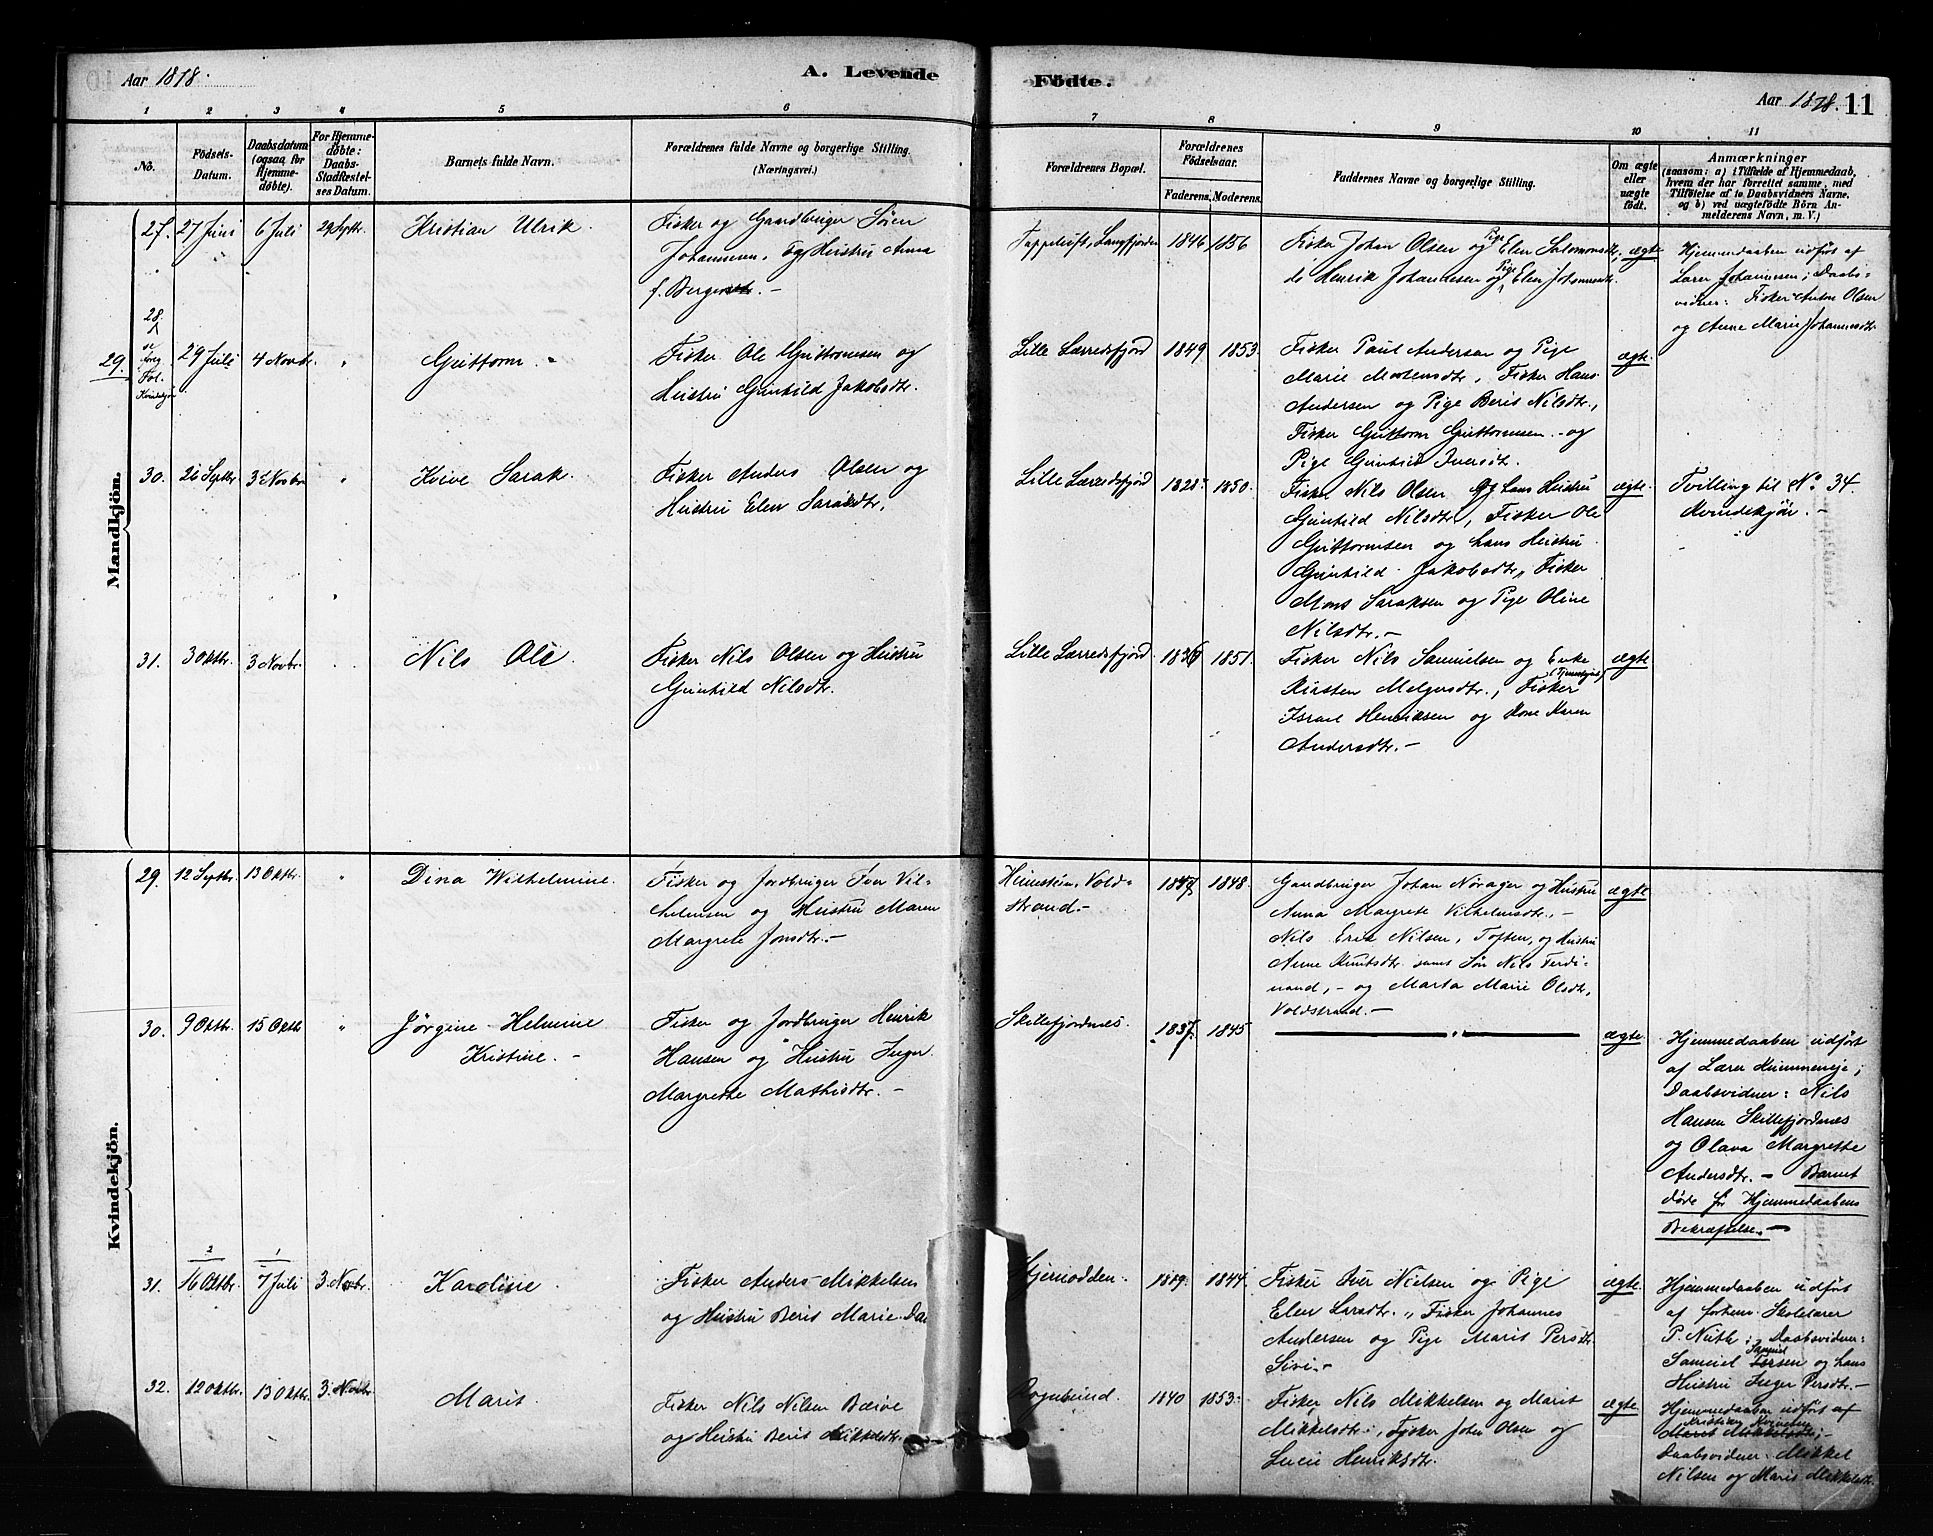 Aar 1878.
A. Levende
Födte.
Aar 1878. 11
1 2 3 4 5 6 7 8 9 10 11
No.
Födsels-
Datum.
Daabsdatum
(ogsaa for
Hjemme-
döbte).
For Hjemme-
döbte:
Daabs-
Stadfæstel-
ses Datum.
Barnets fulde Navn.
Forældrenes fulde Navne og borgerlige Stilling.
(Næringsvei.)
Forældrenes Bopæl.
Forældrenes
Födselsaar.
Faderens. Moderens.
Faddernes Navne og borgerlige Stilling.
Om ægte
eller
uægte
födt.
Anmærkninger
(saasom: a) i Tilfælde af Hjemmedaab,
hvem der har forrettet samme, med
Tilföielse af to Daabsvidners Navne,
og b) ved uægtefödte Börn An-
melderens Navn, m. V.)
Mandkjön.
27. 27 Juni 6 Juli 29 Septr. Kristian Ulrik.
Fisker og Gaardbruger Sören
Johannesen, og Hustru Anna
f. Berger
Tappeluft, Langfjorden 1846 1856
Fisker Johan Olsen og Pige Elen Salomonsdtr,
do Henrik Johannesen og Pige Elen Johannesdtr.
ægte
Hjemmedaaben udfört af
Lars Johannesen; Daabs-
vidner: Fisker Anton Olsen
og Anne Marie Johannesdtr.
28.
se
foreg
Fol.
Kvindekjön
29. 29 Juli 4 Novbr. " Guttorm
Fisker Ole Guttormsen og
Hustru Gunhild Jakobsdtr.
Lille Lærredsfjord 1849 1853.
Fisker Paul Andersen og Pige
Marie Mortensdtr, Fisker Hans
Andersen og Pige Beris Nilsdtr.,
Fisker Guttorm Guttormsen - og
Pige Gunhild Iversdtr.
ægte.
30. 26 Septbr 3 Novbr " Kvive Sarak.
Fisker Anders Olsen og
Hustru Elen Saraksdtr,
Lille Lærredsfjord 1828 1850.
Fisker Nils Olsen og hans Hustru
Gunhild Nilsdtr, Fisker Ole
Guttormsen og hans Hustru
Gunhild Jakobsdtr, Fisker
Mons Saraksen og Pige Oline
Nilsdtr. -
ægte.
Tvilling til No 34.
Kvindekjön. -
31. 30 Oktbr. 3 Novbr. Nils Ole.
Fisker Nils Olsen og Hustru
Gunhild Nilsdtr.
Lille Lærredsfjord 1826 1851.
Fisker Nils Samuelsen og Enke
Kirsten Melgersdtr., Fisker
Israel Henriksen og Kone Karen
Andersdtr. -
ægte
Kvindekjön.
29. 12 Septbr. 13 Oktbr. " Dina Wilhelmine.
Fisker og Jordbruger Iver Vil-
helmsen og Hustru Maren
Margrete Jonsdtr. -
Voldstrand. - 1847 1848.
Gaardbruger Johan Norager og Hustru
Anna Margrete Vilhelmsdtr., -
Nils Erik Nilsen, Toften, og Hustru
Anne Knutsdtr. samt Sön Nils Ferdi-
nand, - og Marta Marie Olsdtr,
Voldstrand. -
ægte
30. 9 Oktbr. 15 Oktb " Jörgine Helmine
Kristine. -
Fisker og Jordbruger Henrik
Hansen og Hustru Inger
Margrethe Mathisdtr. -
Skillefjordnes. 1837. 1845
ægte.
Hjemmedaaben udfört
af Lærer
Daabsvidner: Nils
Hansen Skillefjordnes
og Olava Margrethe
Andersdtr. - Barnet
döde för Hjemmedaabens
Bekræftelse. -
31. 16 Oktbr. 7 Juli 3. Novbr. Karoline.
2 1
Fisker Anders Mikkelsen
og Hustru Beris Marie
1844.
Fisker Iver Nielsen og Pige
Elen Larsdtr., Fisker Johannes
Andersen og Pige Maris Persdtr.
Sivi. -
ægte
Hjemmedaaben udfört
af forhenv. Skolelærer
Daabsvidner:
Samuel Persen og hans
Hustru Inger Persdtr. -
32. 12 Oktbr. 13 Oktbr. 3. Novbr Maris.
Fisker Nils Nilsen Bæive
og Hustru Beris Mikkelsdtr.
Rognsund 1840 1853.
Fisker Nils Mikkelsen og Maris
Mikkelsdtr., Fisker John Olsen og
Lucie Henriksdtr.
ægte
Hjemmedaaben udfört af
Kristian Kvænen
Daabsvidner. Mikkel
Nilsen og Maris Mikkelsdtr.